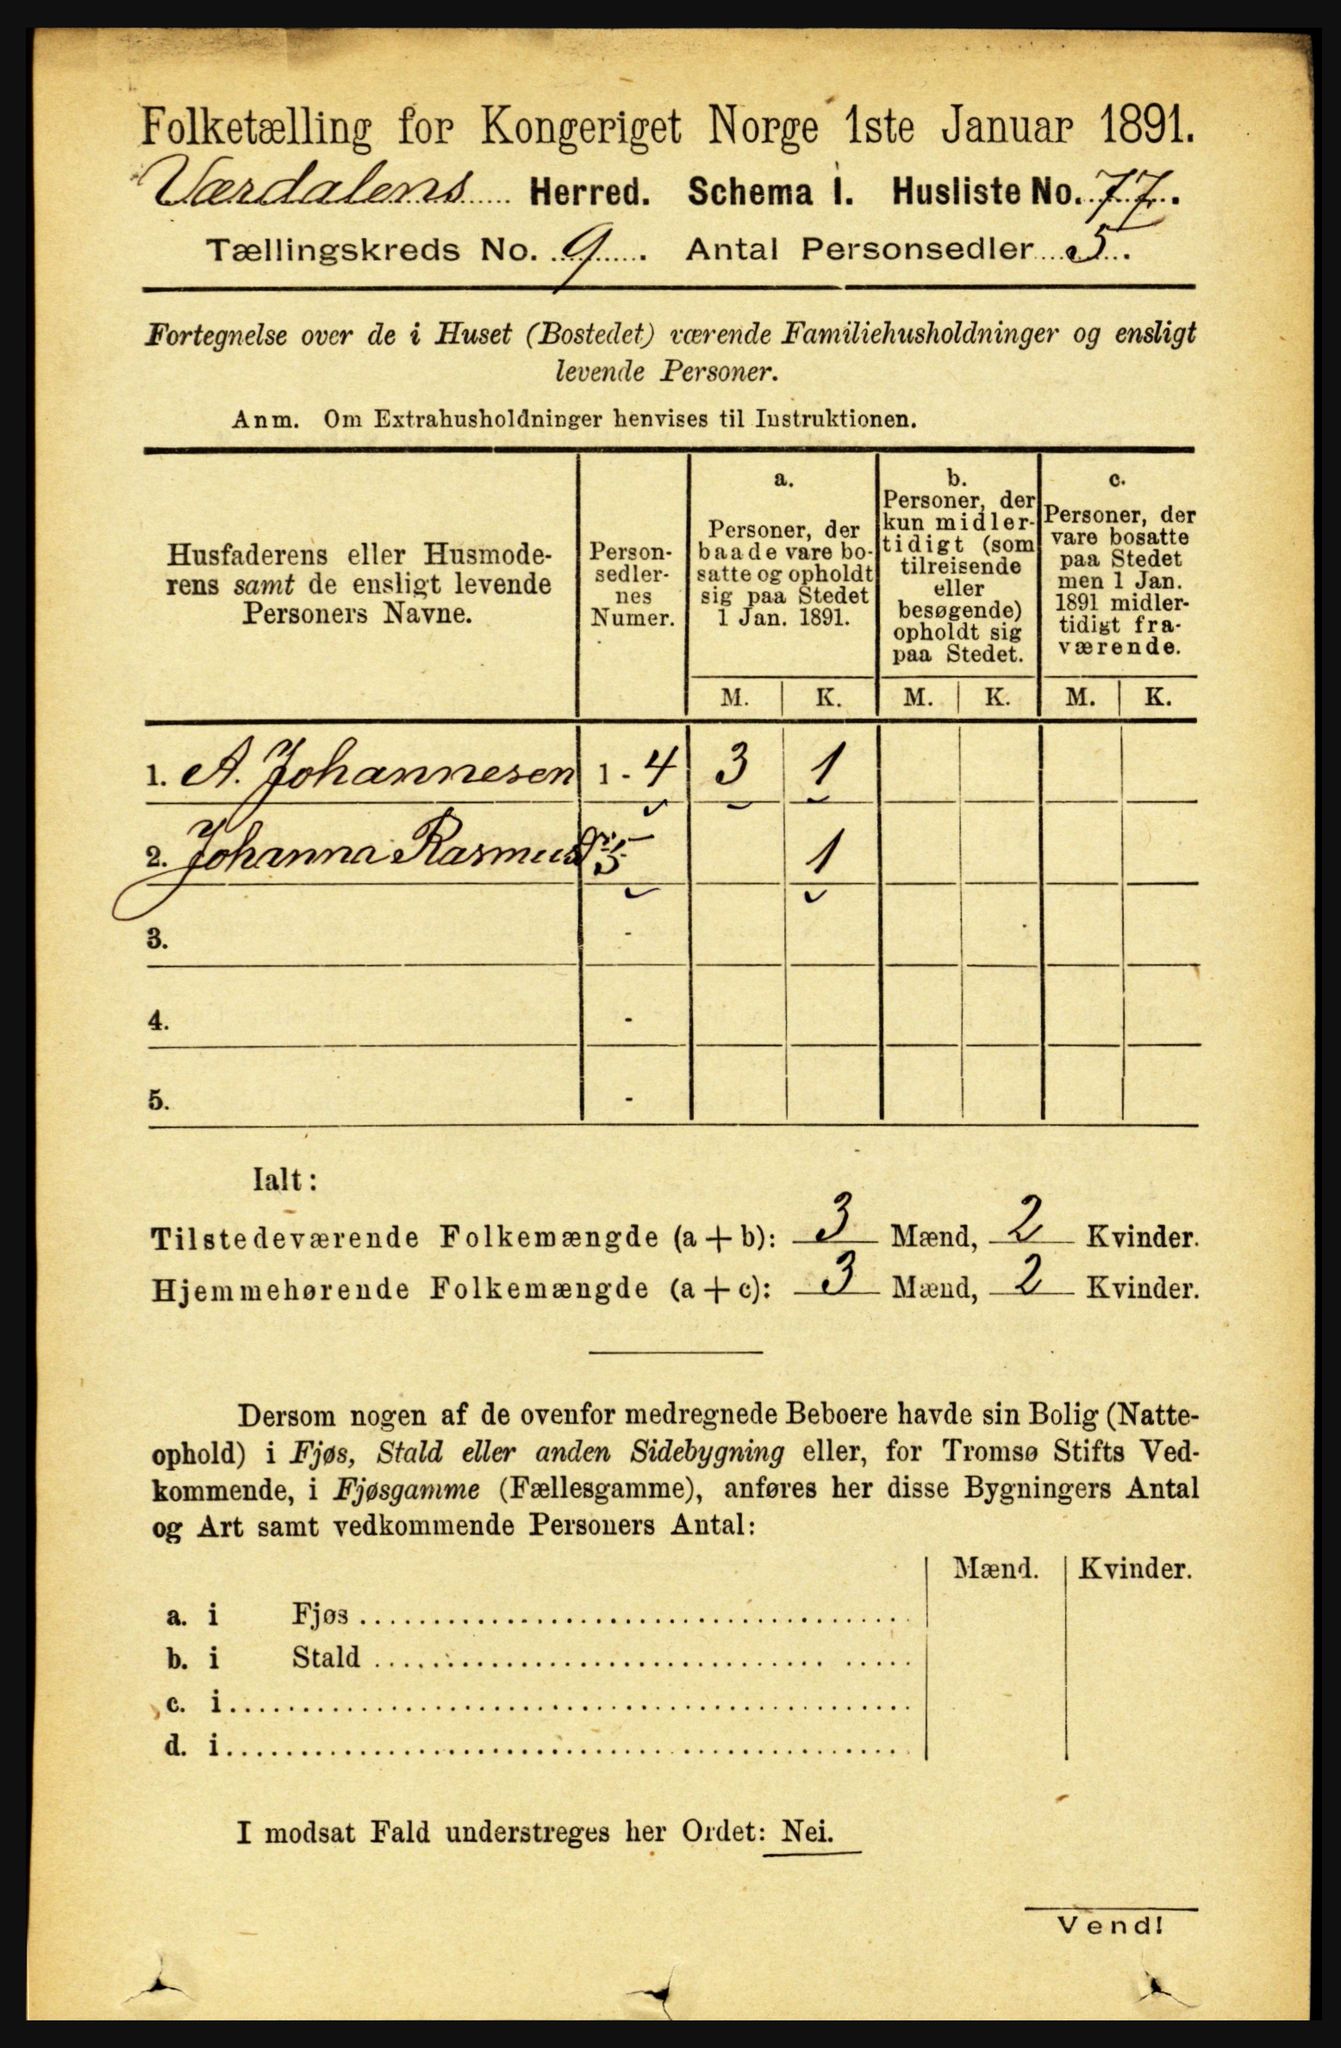 Folketælling for Kongeriget Norge 1ste Januar 1891.
Værdalens Herred. Schema I. Husliste No. 77.
Tællingskreds No. 9. Antal Personsedler 5.
Fortegnelse over de i Huset (Bostedet) værende Familiehusholdninger og ensligt
levende Personer.
Anm. Om Extrahusholdninger henvises til Instruktionen.
Husfaderens eller Husmode-
rens samt de ensligt levende
Personers Navne.
Person-
sedler-
nes
Numer.
a.
Personer, der
baade vare bo-
satte og opholdt
sig paa Stedet
1 Jan. 1891.
b.
Personer, der
kun midler-
tidigt (som
tilreisende
eller
besøgende)
opholdt sig
paa Stedet.
c.
Personer, der
vare bosatte
paa Stedet
men 1 Jan.
1891 midler-
tidigt fra-
værende.
M. K. M. K. M. K.
1. A. Johannesen 1 - 4 3 1
2. Johanna Rasmus 5 1
3. -
4. -
5. -
Ialt:
Tilstedeværende Folkemængde (a + b): 3 Mænd, 2 Kvinder.
Hjemmehørende Folkemængde (a + c): 3 Mænd, 2 Kvinder.
Dersom nogen af de ovenfor medregnede Beboere havde sin Bolig (Natte-
ophold) i Fjøs, Stald eller anden Sidebygning eller, for Tromsø Stifts Ved-
kommende, i Fjøsgamme (Fællesgamme), anføres her disse Bygningers Antal
og Art samt vedkommende Personers Antal:
Mænd. Kvinder.
a. i Fjøs
b. i Stald
c. i
d. i
I modsat Fald understreges her Ordet: Nei.
Vend!